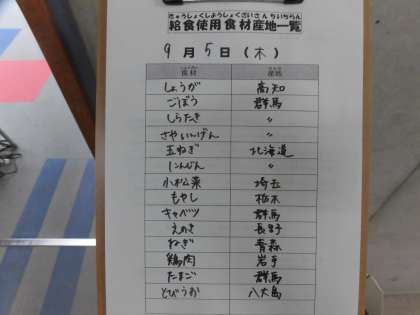 きゅうしょくしようしょくざいさんちいちらん
給食使用食材産地一覧
9月5日(木)
食材 産地
しょうが 高知
ごぼう 群馬
しらたき 〃
さやいんげん 〃
玉ねぎ 北海道
にんじん 〃
小松菜 埼玉
もやし 栃木
キャベツ 群馬
えのき 長野
ねぎ 青森
鶏肉 岩手
たまご 群馬
とびうお 八丈島